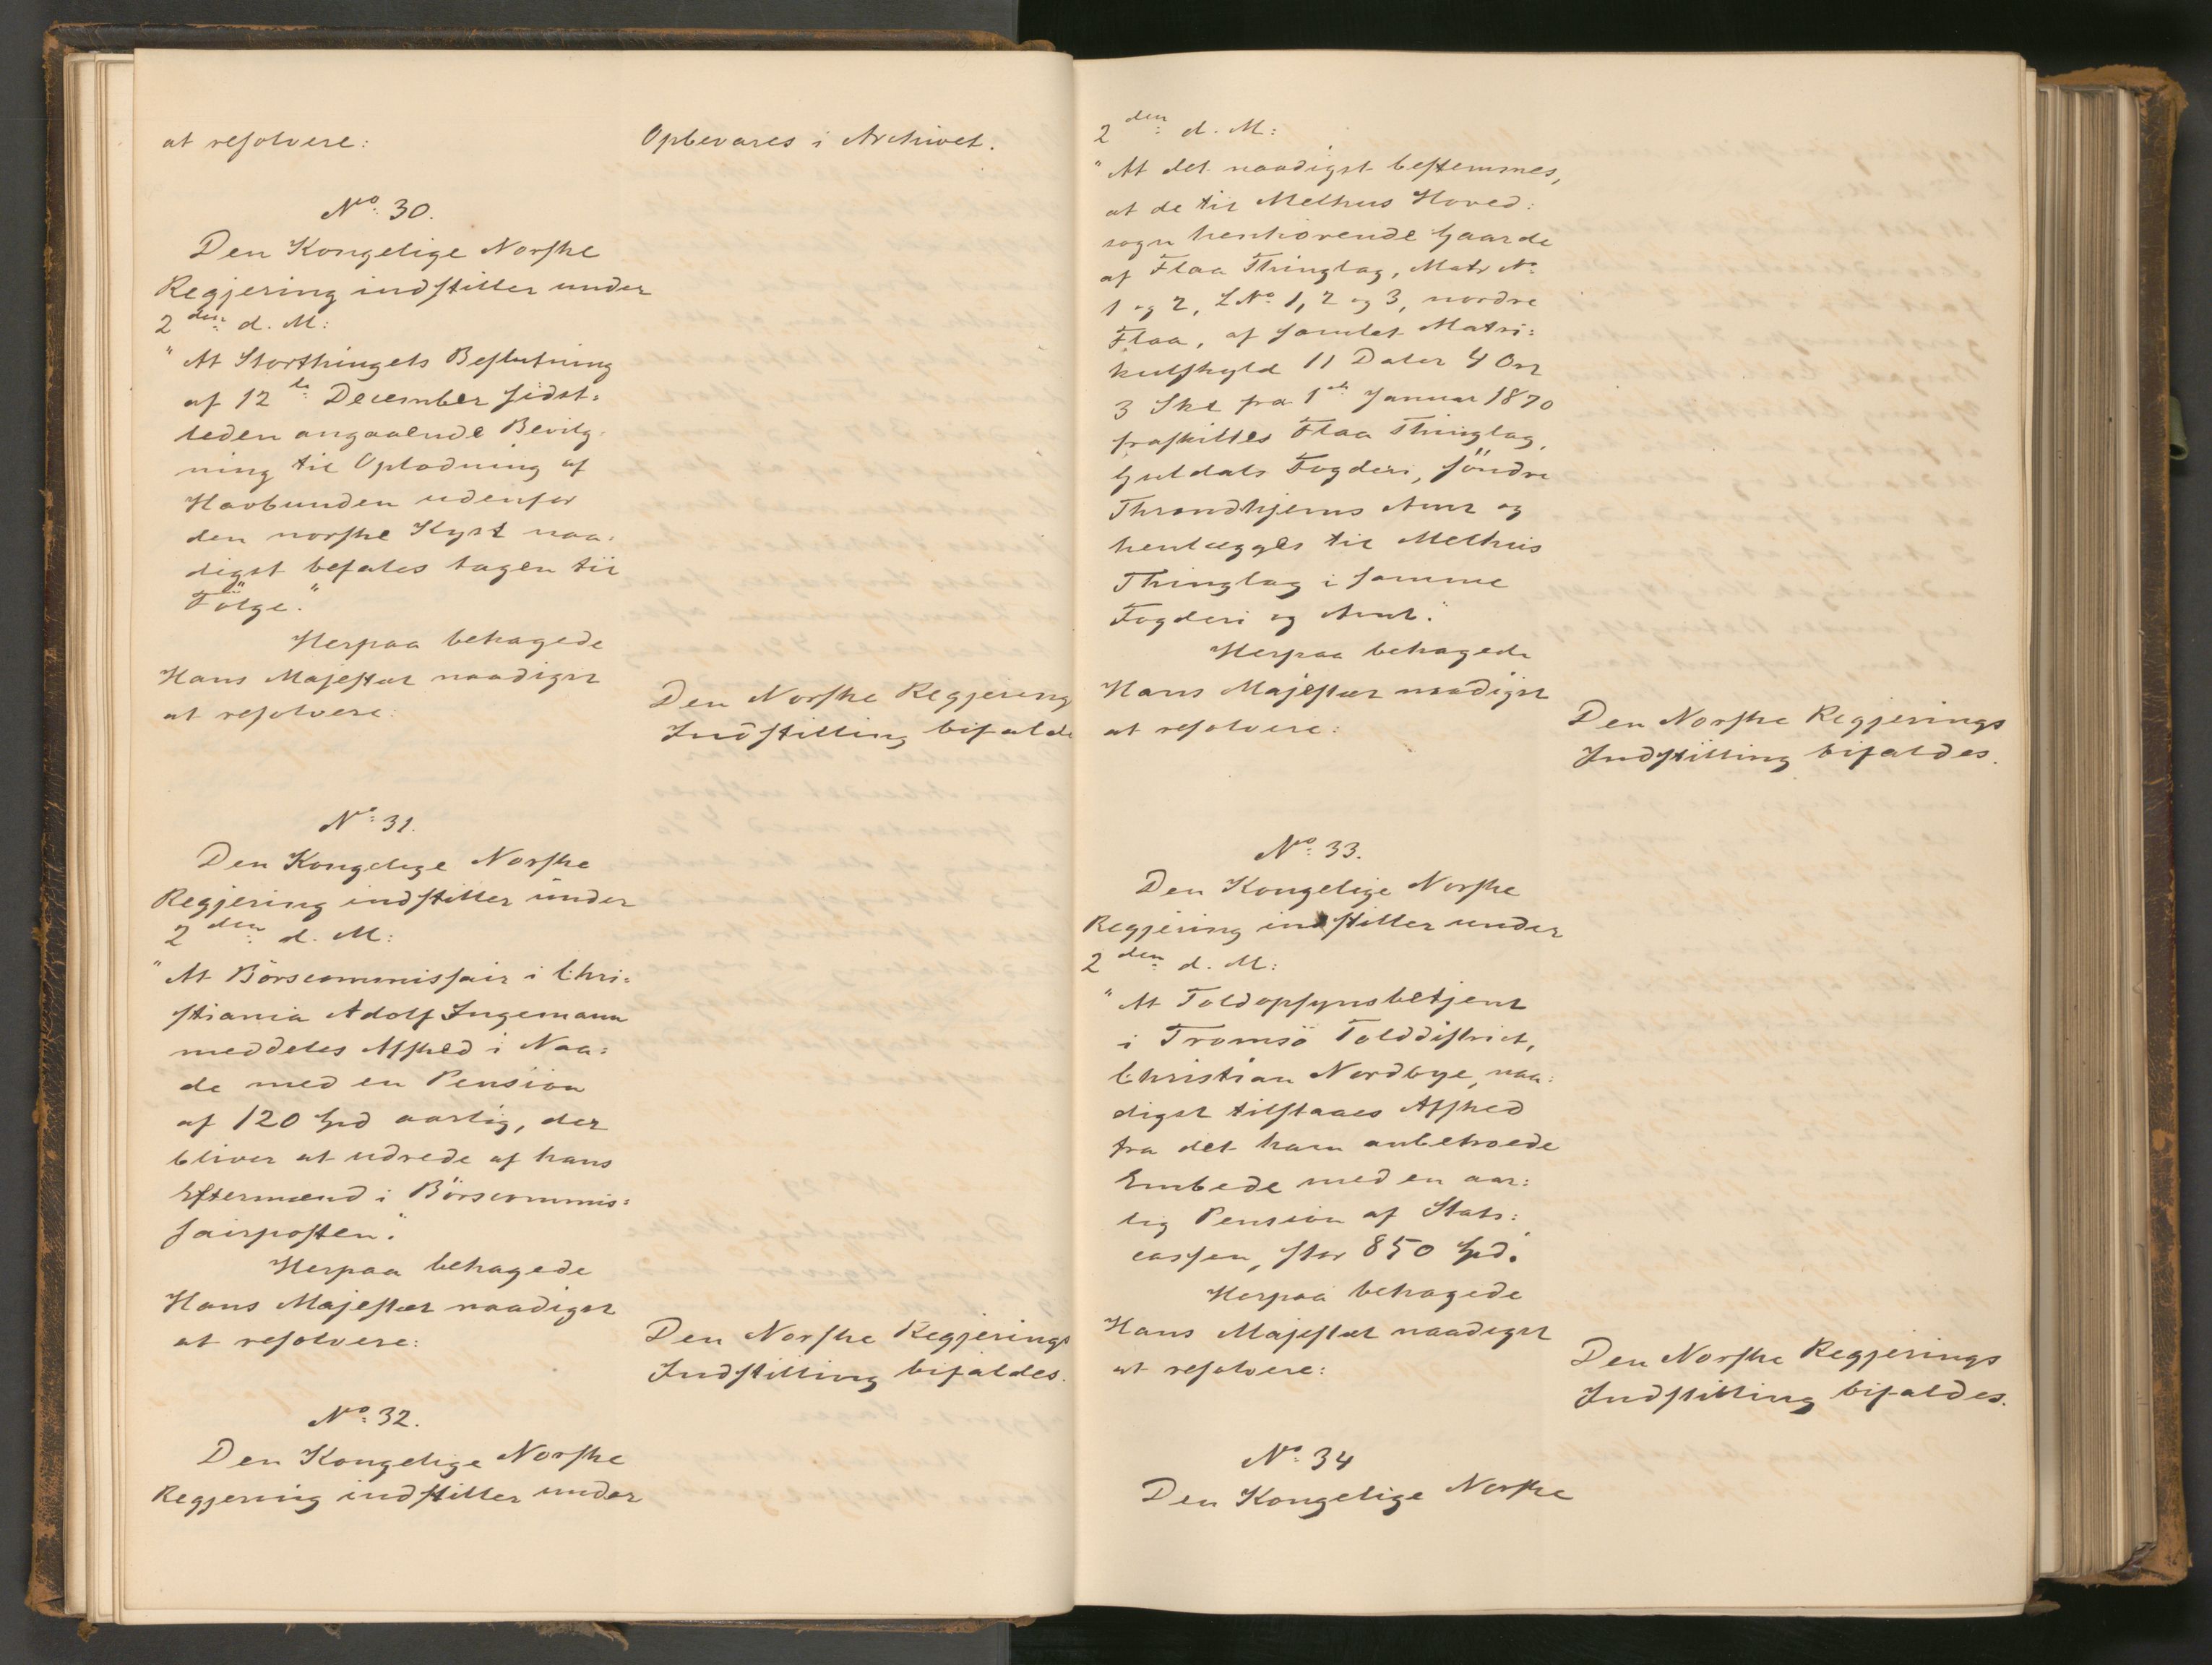 at resolvere:
Opbevares i Archivet.
No. 30.
Den Kongelige Norske
Regjering indstiller under
2den d. M:
"At Storthingets Beslutning
af 12te December sidst-
leden angaaende Bevilg-
ning til Oplodning af
Havbunden udenfor
den norske Kyst naa:
digst befales tagen til
Følge."
Herpaa behagede
Hans Majestæt naadigst
at resolvere:
Den Norske Regjering
Indstilling bifalde
No. 31.
Den Kongelige Norske
Regjering indstiller under
2den d. M:
"At Börscommissair i Chri:
stiania Adolf Ingemann
meddeles Afsked i Naa:
de med en Pension
af 120 Spd aarlig, der
bliver at udrede af hans
Eftermænd i Börscommis:
sairposten."
Herpaa behagede
Hans Majestæt naadigst
at resolvere:
Den Norske Regjerings
Indstilling bifaldes.
No. 32.
Den Kongelige Norske
Regjering indstiller under
2den d. M:
"At det naadigst bestemmes,
at de til Melhus Hoved:
sogn henhörende Gaarde
af Flaa Thinglag, Matr No.
1 og 2, L No. 1, 2 og 3, nordre
Flaa, af samlet Matri:
kulskyld 11 Daler 4 Ort
3 Skl fra 1ste Januar 1870
fraskilles Flaa Thinglag,
Guldals Fogderi, söndre
Throndhjems Amt og
henlægges til Melhus
Thinglag i samme
Fogderi og Amt."
Herpaa behagede
Hans Majestæt naadigst
at resolvere:
Den Norske Regjerings
Indstilling bifaldes.
No. 33.
Den Kongelige Norske
Regjering indstiller under
2den d. M:
"At Toldopsynsbetjent
i Tromsö Tolddistrict,
Christian Nordbye, naa:
digst tilstaaes Afsked
fra det ham anbetroede
Embede med en aar:
lig Pension af Stats:
cassen, stor 850 Spd."
Herpaa behagede
Hans Majestæt naadigst
at resolvere:
Den Norske Regjerings
Indstilling bifaldes.
No. 34
Den Kongelige Norske